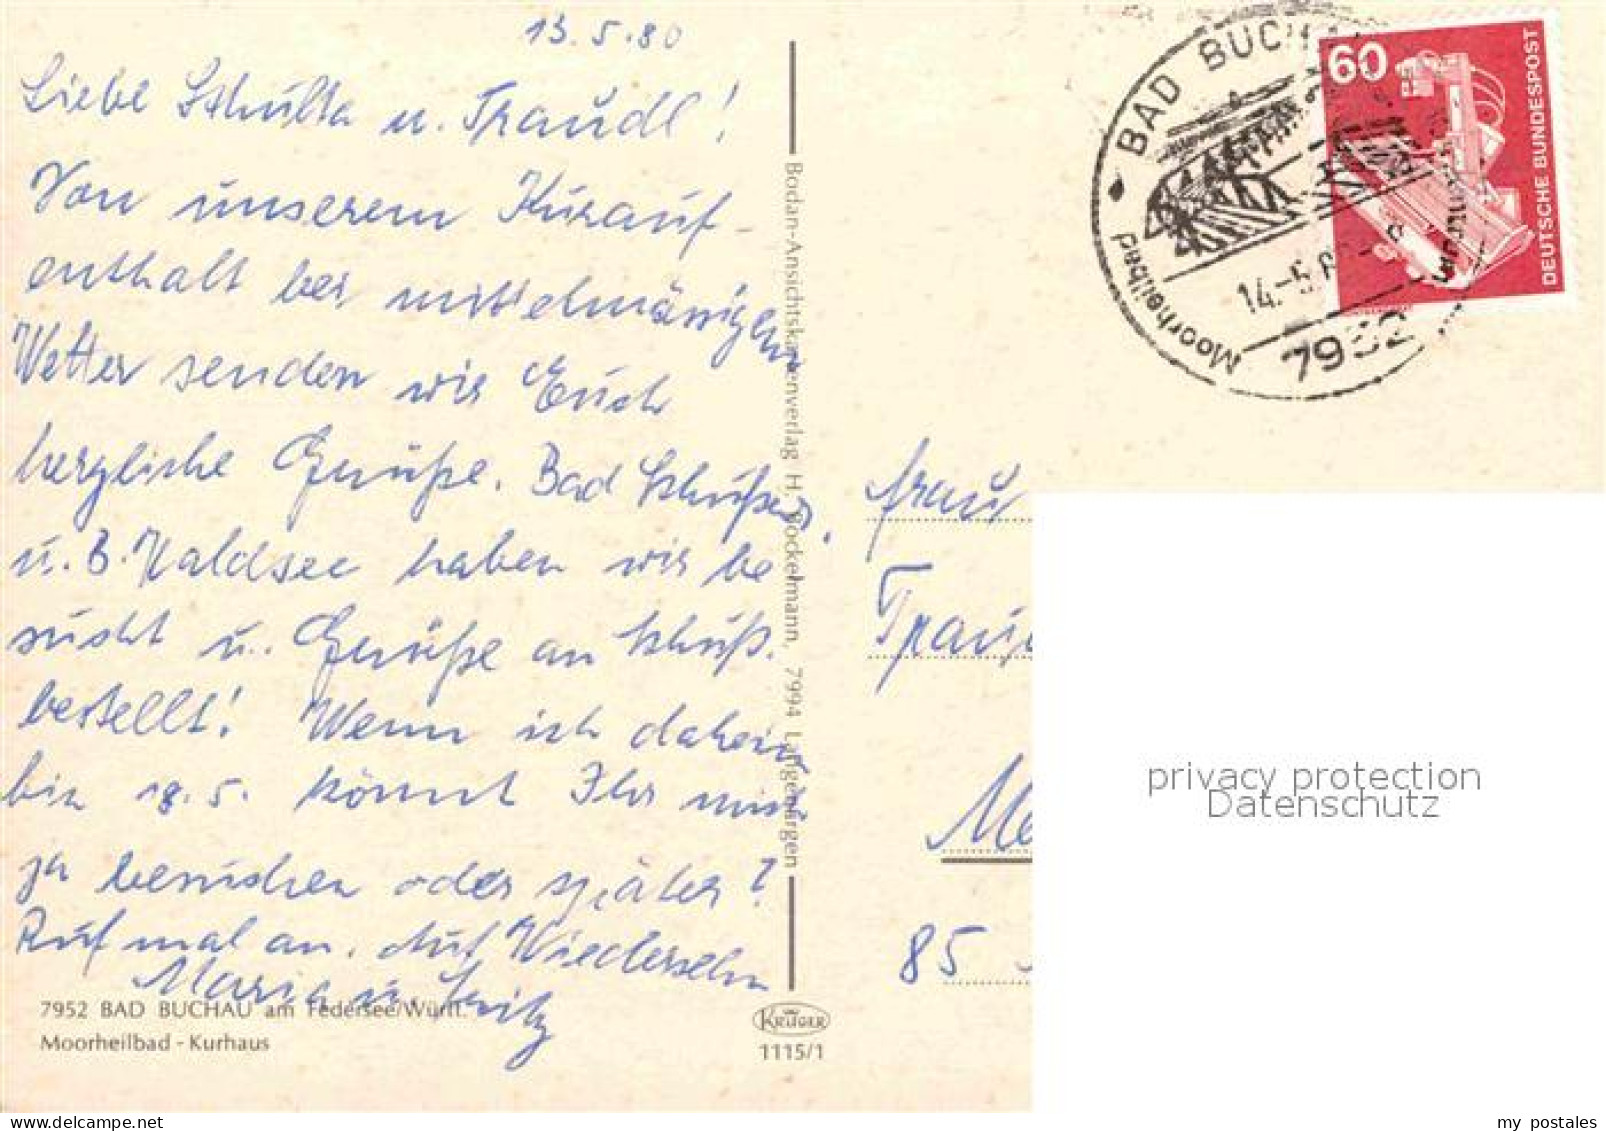 13.5.80
Liebe Schulta u. Traudl!
Von unserem Kurauf-
enthalt bei mittelmässigem
Wetter senden wir Euch
herzliche Grüße. Bad Schußenr.
u. B. Waldsee haben wir be
sucht u. Grüße an Schuß.
bestellt! Wenn ich daheim
bin 18.5. könnt Ihr mich
ja besuchen oder später?
Ruf mal an. Auf Wiedersehn
Maria u. Fritz
7952 BAD BUCHAU am Federsee/Württ.
Moorheilbad - Kurhaus
Bodan-Ansichtskartenverlag H. Bockelmann, 7994 Langenargen
KRÜGER
1115/1
BAD BUCH
Moorheilbad
14.-5.8
7952
60
DEUTSCHE BUNDESPOST
Frau
Trau
Me
85
privacy protection
Datenschutz
my postales